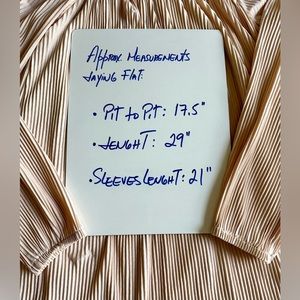 Approx. Measurements
Laying Flat:
• Pit to Pit: 17.5"
• Lenght: 29"
• Sleeves Lenght: 21"